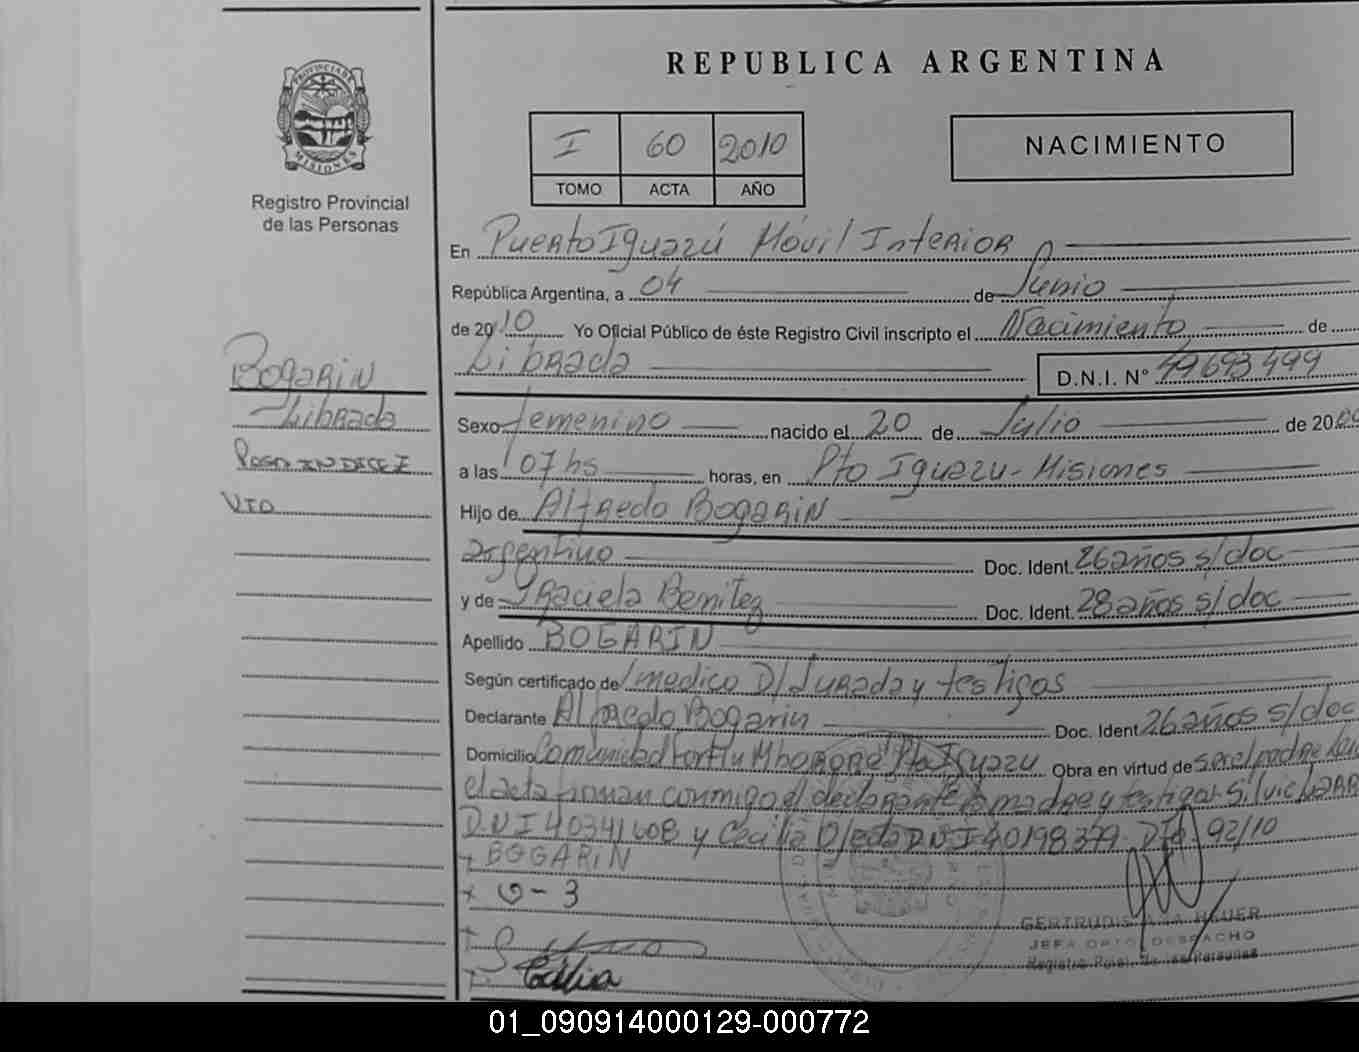 REPUBLICA ARGENTINA
PROVINCIA DE
MISIONES
Registro Provincial
de las Personas
I 60 2010
TOMO ACTA AÑO
NACIMIENTO
En Puerto Iguazú Móvil Interior
República Argentina, a 04 de Junio
de 2010 Yo Oficial Público de éste Registro Civil inscripto el Nacimiento de
Librada D.N.I. Nº 49693499
Bogarin
Librada
Sexo femenino nacido el 20 de Julio de 2009
a las 07 hs horas, en Pto Iguazu - Misiones
Hijo de Alfredo Bogarin
argentino Doc. Ident. 26 años s/doc
y de Graciela Benitez Doc. Ident. 28 años s/doc
Apellido BOGARIN
Según certificado de medico D/Jurada y testigos
Declarante Alfredo Bogarin Doc. Ident 26 años s/doc
Domicilio Comunidad Fortin Mborore Pto Iguazu Obra en virtud de ser el padre
el acta firman conmigo el declarante la madre y testigos
DNI 40341608 y Cecilia Ojeda DNI 40198379 92/10
BOGARIN
GERTRUDIS ANA HAUER
JEFA DPTO DESPACHO
Registro Pcial. de las Personas
Cecilia
01_090914000129-000772